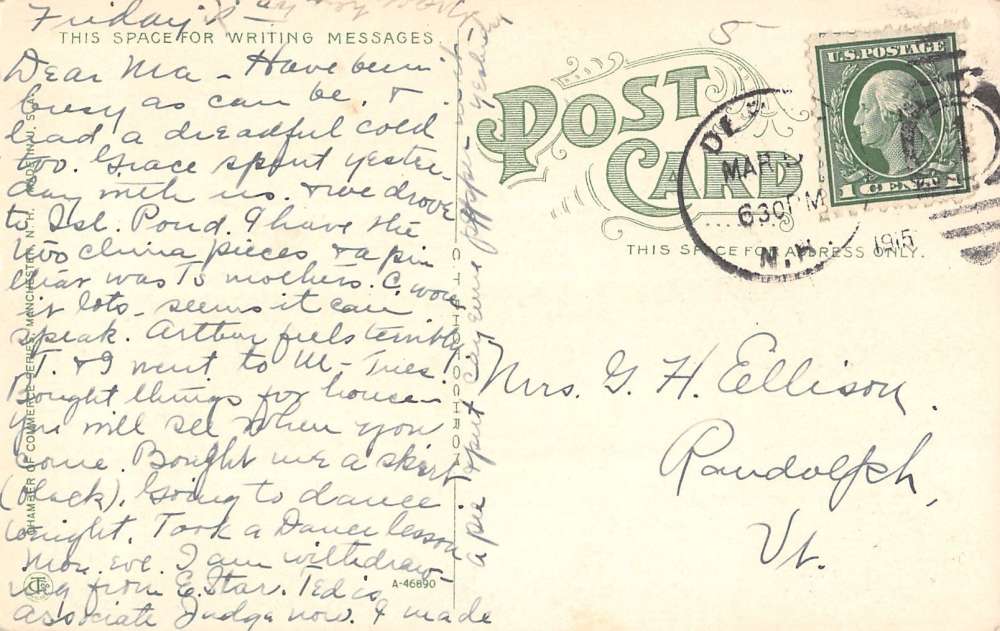 Friday
THIS SPACE FOR WRITING MESSAGES
Dear Ma - Have been
busy as can be. &
had a dreadful cold
too. Grace spent yester-
day with us. & we drove
to Isl. Pond. I have the
two china pieces & a pin
that was T's mothers. C. won
it lots - seems it can
speak. Arthur feels terribly
T. & I went to M- Tues.
Bought things for house-
You will see when you
come. Bought me a skirt
(black). Going to dance
tonight. Took a Dance lesson
Mon. eve. I am withdraw-
ing from E. Star. Ted is
Associate Judge now. I made
a pie & put cayenne pepper in it yesterday
CHAMBER OF COMMERCE SERIES, MANCHESTER, N. H.
C. T. PHOTOCHROM
A-46890
POST
CARD
THIS SPACE FOR ADDRESS ONLY.
5
U.S. POSTAGE
1 CENT 1
MAR
630 PM
1915
N.H.
Mrs. G. H. Ellison.
Randolph,
Vt.